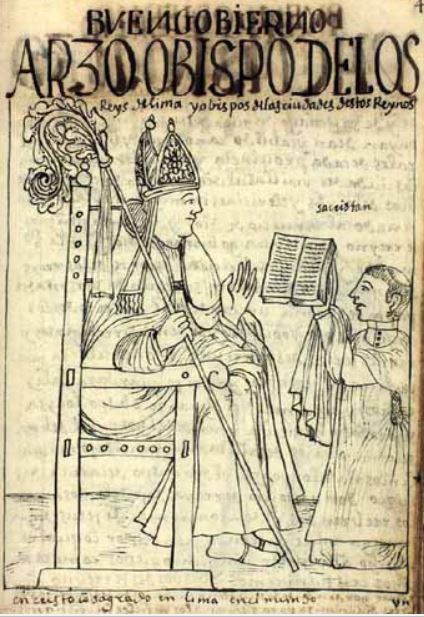 BVENGOBIERNO
ARZOOBISPODELOS
Reys de lima y obispos de las ciudades destos Reynos
sacristan
en cristo
en lima en el mundo